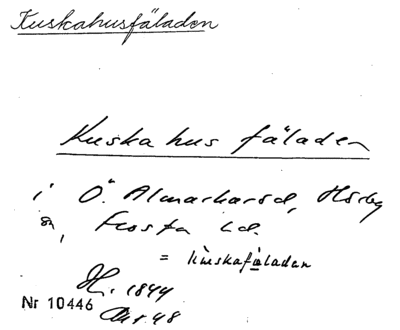 Kuskahusfäladen
Kuskahusfäladen
i Ö. Almarharad, Hörby
sn, Frosta hd.
= kuskafäladen
H. 1844
Nr 10446